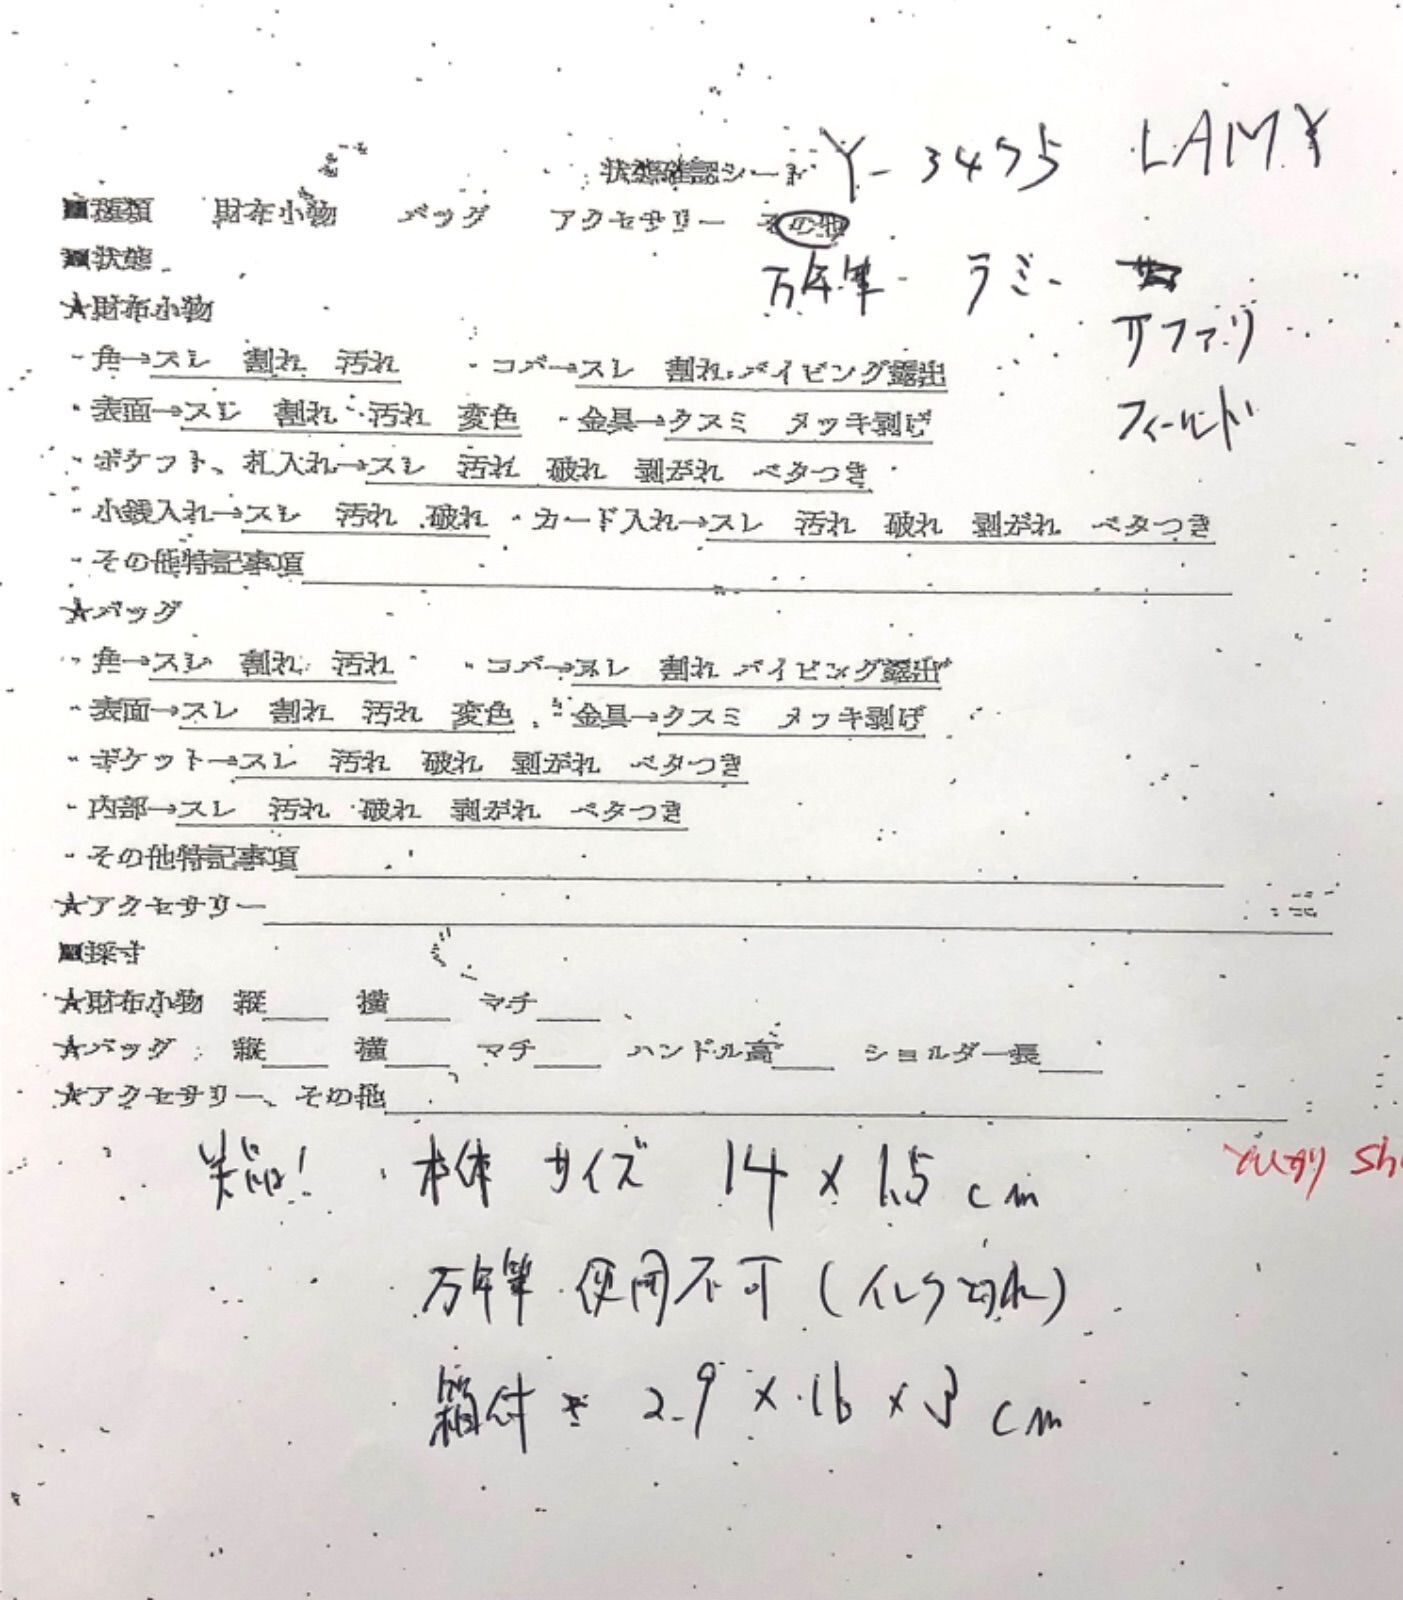 状態確認シート Y-3475 LAMY
■種類 財布小物 バッグ アクセサリー その他
■状態
万年筆 ラミー
サファリ
フィールド
★財布小物
・角→スレ 割れ 汚れ ・コバ→スレ 割れ パイピング露出
・表面→スレ 割れ 汚れ 変色 ・金具→クスミ メッキ剥げ
・ポケット、札入れ→スレ 汚れ 破れ 剥がれ ベタつき
・小銭入れ→スレ 汚れ 破れ ・カード入れ→スレ 汚れ 破れ 剥がれ ベタつき
・その他特記事項
★バッグ
・角→スレ 割れ 汚れ ・コバ→スレ 割れ パイピング露出
・表面→スレ 割れ 汚れ 変色 ・金具→クスミ メッキ剥げ
・ポケット→スレ 汚れ 破れ 剥がれ ベタつき
・内部→スレ 汚れ 破れ 剥がれ ベタつき
・その他特記事項
★アクセサリー
■採寸
★財布小物 縦 横 マチ
★バッグ 縦 横 マチ ハンドル高 ショルダー長
★アクセサリー、その他
美品! 本体サイズ 14×1.5cm
万年筆 使用不可(インク切れ)
箱付き 2.9×16×3cm